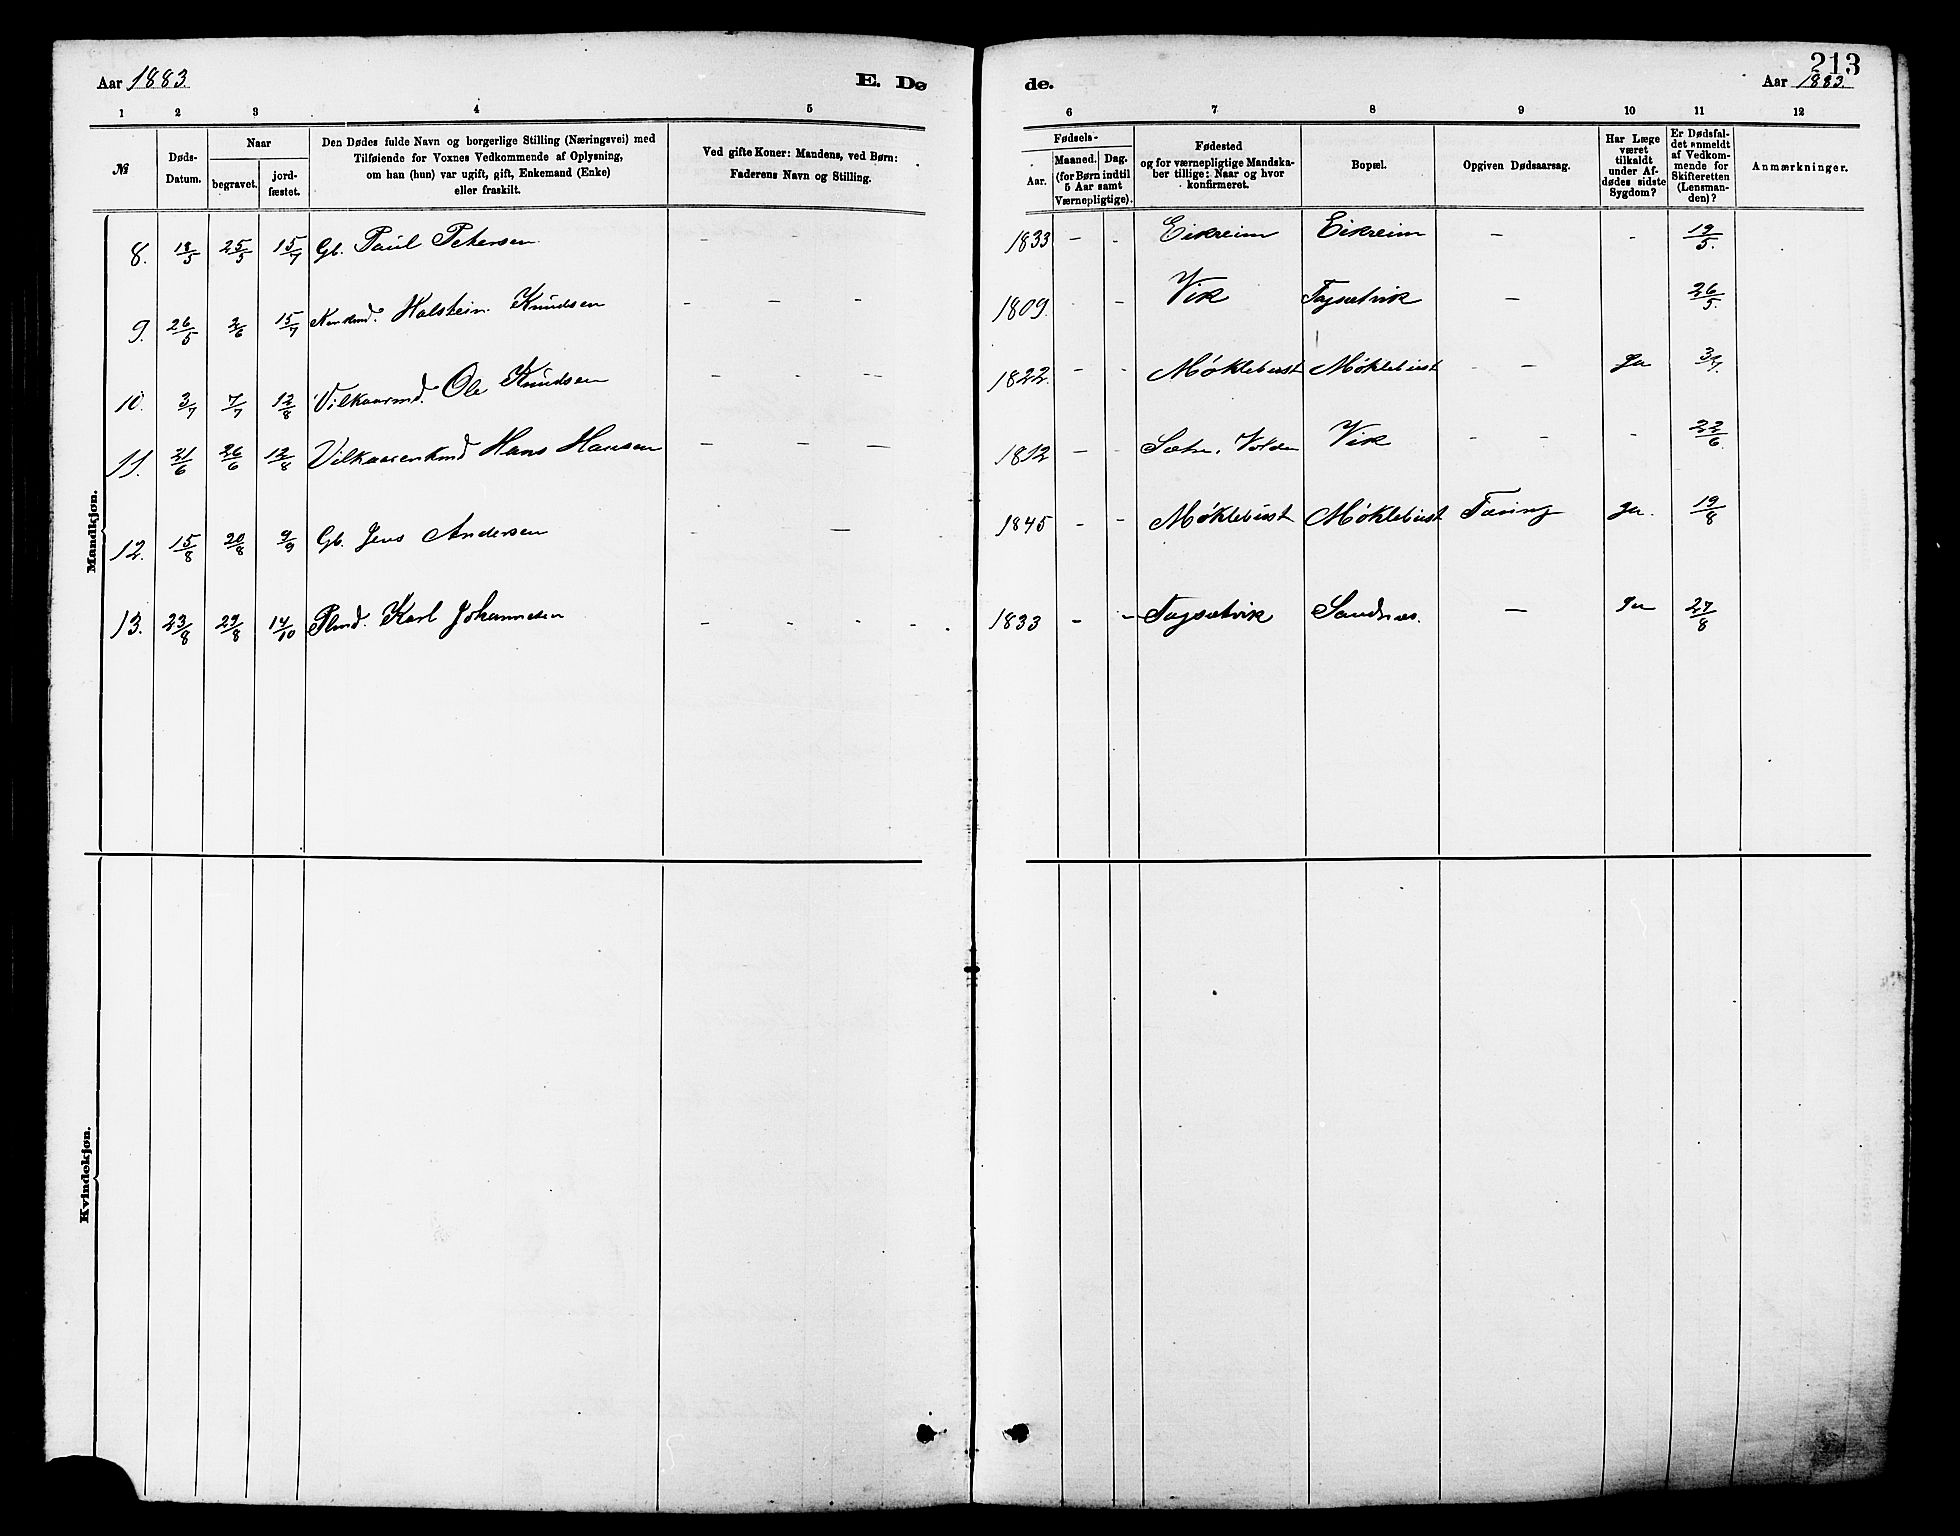 Aar 1883.
E. Dø
de.
213
Aar 1883.
1 2 3 4 5
6 7 8 9 10 11 12
№
Døds-Datum.
Naar
begravet.
jordfæstet.
Den Dødes fulde Navn og borgerlige Stilling (Næringsvei) med
Tilføiende for Voxnes Vedkommende af Oplysning,
om han (hun) var ugift, gift, Enkemand (Enke)
eller fraskilt.
Ved gifte Koner: Mandens, ved Børn:
Faderens Navn og Stilling.
Fødsels-
Aar.
Maaned. Dag.
(for Børn indtil
5 Aar samt
Værnepligtige).
Fødested
og for værnepligtige Mandskaber tillige: Naar og hvor
konfirmeret.
Bopæl.
Opgiven Dødsaarsag.
Har Læge
været
tilkaldt
under Afdødes sidste
Sygdom?
Er Dødsfaldet anmeldt
af Vedkommende for
Skifteretten
(Lensmanden)?
Anmærkninger.
Mandkjøn.
8. 18/5 25/5 15/7 Gb. Paul Petersen - - - 1833 - - Eikreim Eikreim - - 19/5.
9. 26/5 2/6 15/7 Holstein Knudsen - - - 1809. - - Vik Tagsætvik - 26/5.
10. 3/7 7/7 12/8 Vilkaarmd. Ole Knudsen - - - 1822. - - Møklebust Møklebust - - Ja 3/7.
11. 21/6 26/6 12/8 Hans Hansen - - - 1812 - - Sætre, Volden Vik - - - 22/6.
12. 15/8 20/8 9/9 Gb. Jens Andersen - - 1845 - - Møklebust Møklebust Tæring Ja. 19/8
13. 23/8 29/8 14/10 Plmd. Karl Johannesen - - - - 1833 - - Tagsætvik Sandnæs. - Ja 27/8
Kvindekjøn.